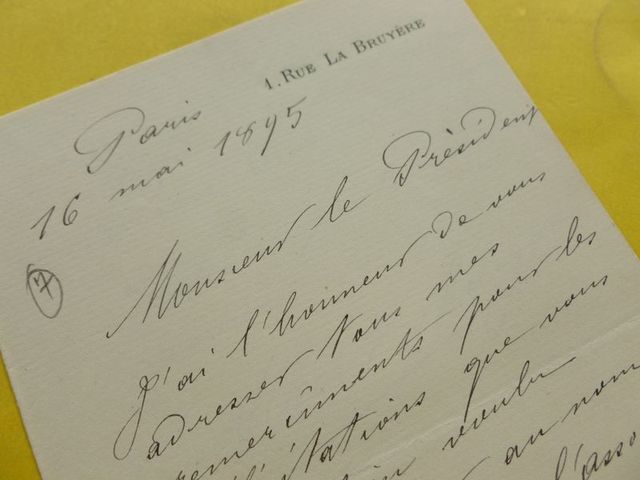 1. RUE LA BRUYÈRE
Paris
16 mai 1895
7
Monsieur le Président
J'ai l'honneur de vous
adresser tous mes
remercîments pour les
que vous
voulu
au nom
l'asso